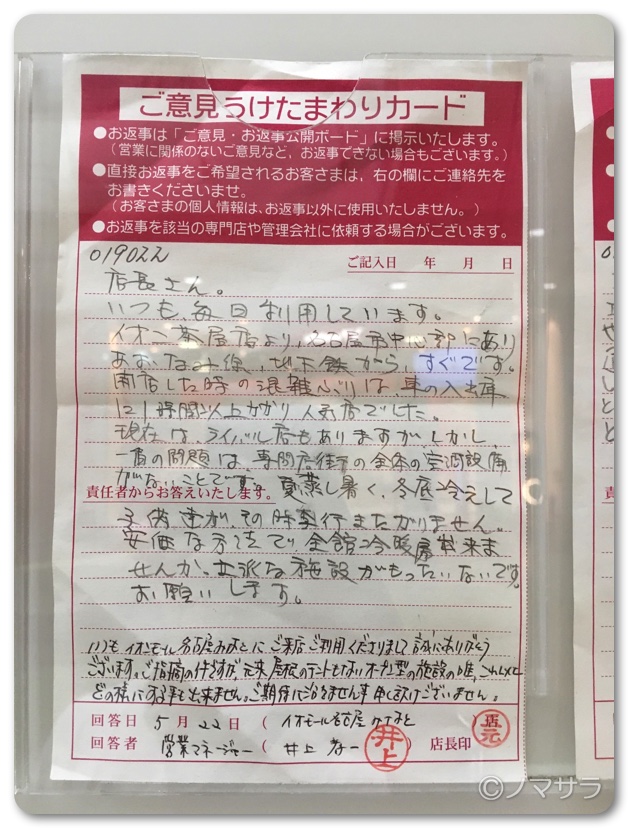 ご意見うけたまわりカード
●お返事は「ご意見・お返事公開ボード」に掲示いたします。
（営業に関係のないご意見など，お返事できない場合もございます。）
●直接お返事をご希望されるお客さまは，右の欄にご連絡先を
お書きくださいませ。
（お客さまの個人情報は、お返事以外に使用いたしません。）
●お返事を該当の専門店や管理会社に依頼する場合がございます。
019022
ご記入日 年 月 日
店長さん。
いつも、毎日利用しています。
イオン茶屋店より、名古屋市中心部にあり
あおなみ線、地下鉄から、すぐです。
開店した時の混雑ぶりは、車の入出庫
に1時間以上かかり人気店でした。
現在は、ライバル店もありますが、しかし、
一番の問題は、専門店街の全体の空調設備
がないことです。夏蒸し暑く、冬底冷えして
責任者からお答えいたします。
子供達が、その時季行きたがりません。
安価な方法で全館冷暖房出来ま
せんか、立派な施設がもったいないです。
お願いします。
いつも、イオンモール名古屋みなとにご来店ご利用くださりまして、誠にありがとう
ございます。ご指摘の件ですが、元来、屋根のテントもないオープン型の施設の為、これ以上
どの様にする事も出来ません。ご期待に沿えません事申し訳ございません。
回答日 5月22日 （イオンモール名古屋みなと）店
回答者 営業マネージャー （井上 孝一 井上）店長印 元
©ノマサラ